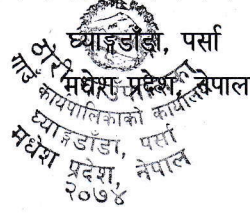 घ्याङ्गडाँडा, पर्सा
मधेश प्रदेश, नेपाल
ठोरी
गाउँ कार्यपालिकाको कार्यालय
घ्याङ्गडाँडा, पर्सा
मधेश प्रदेश, नेपाल
२०७४